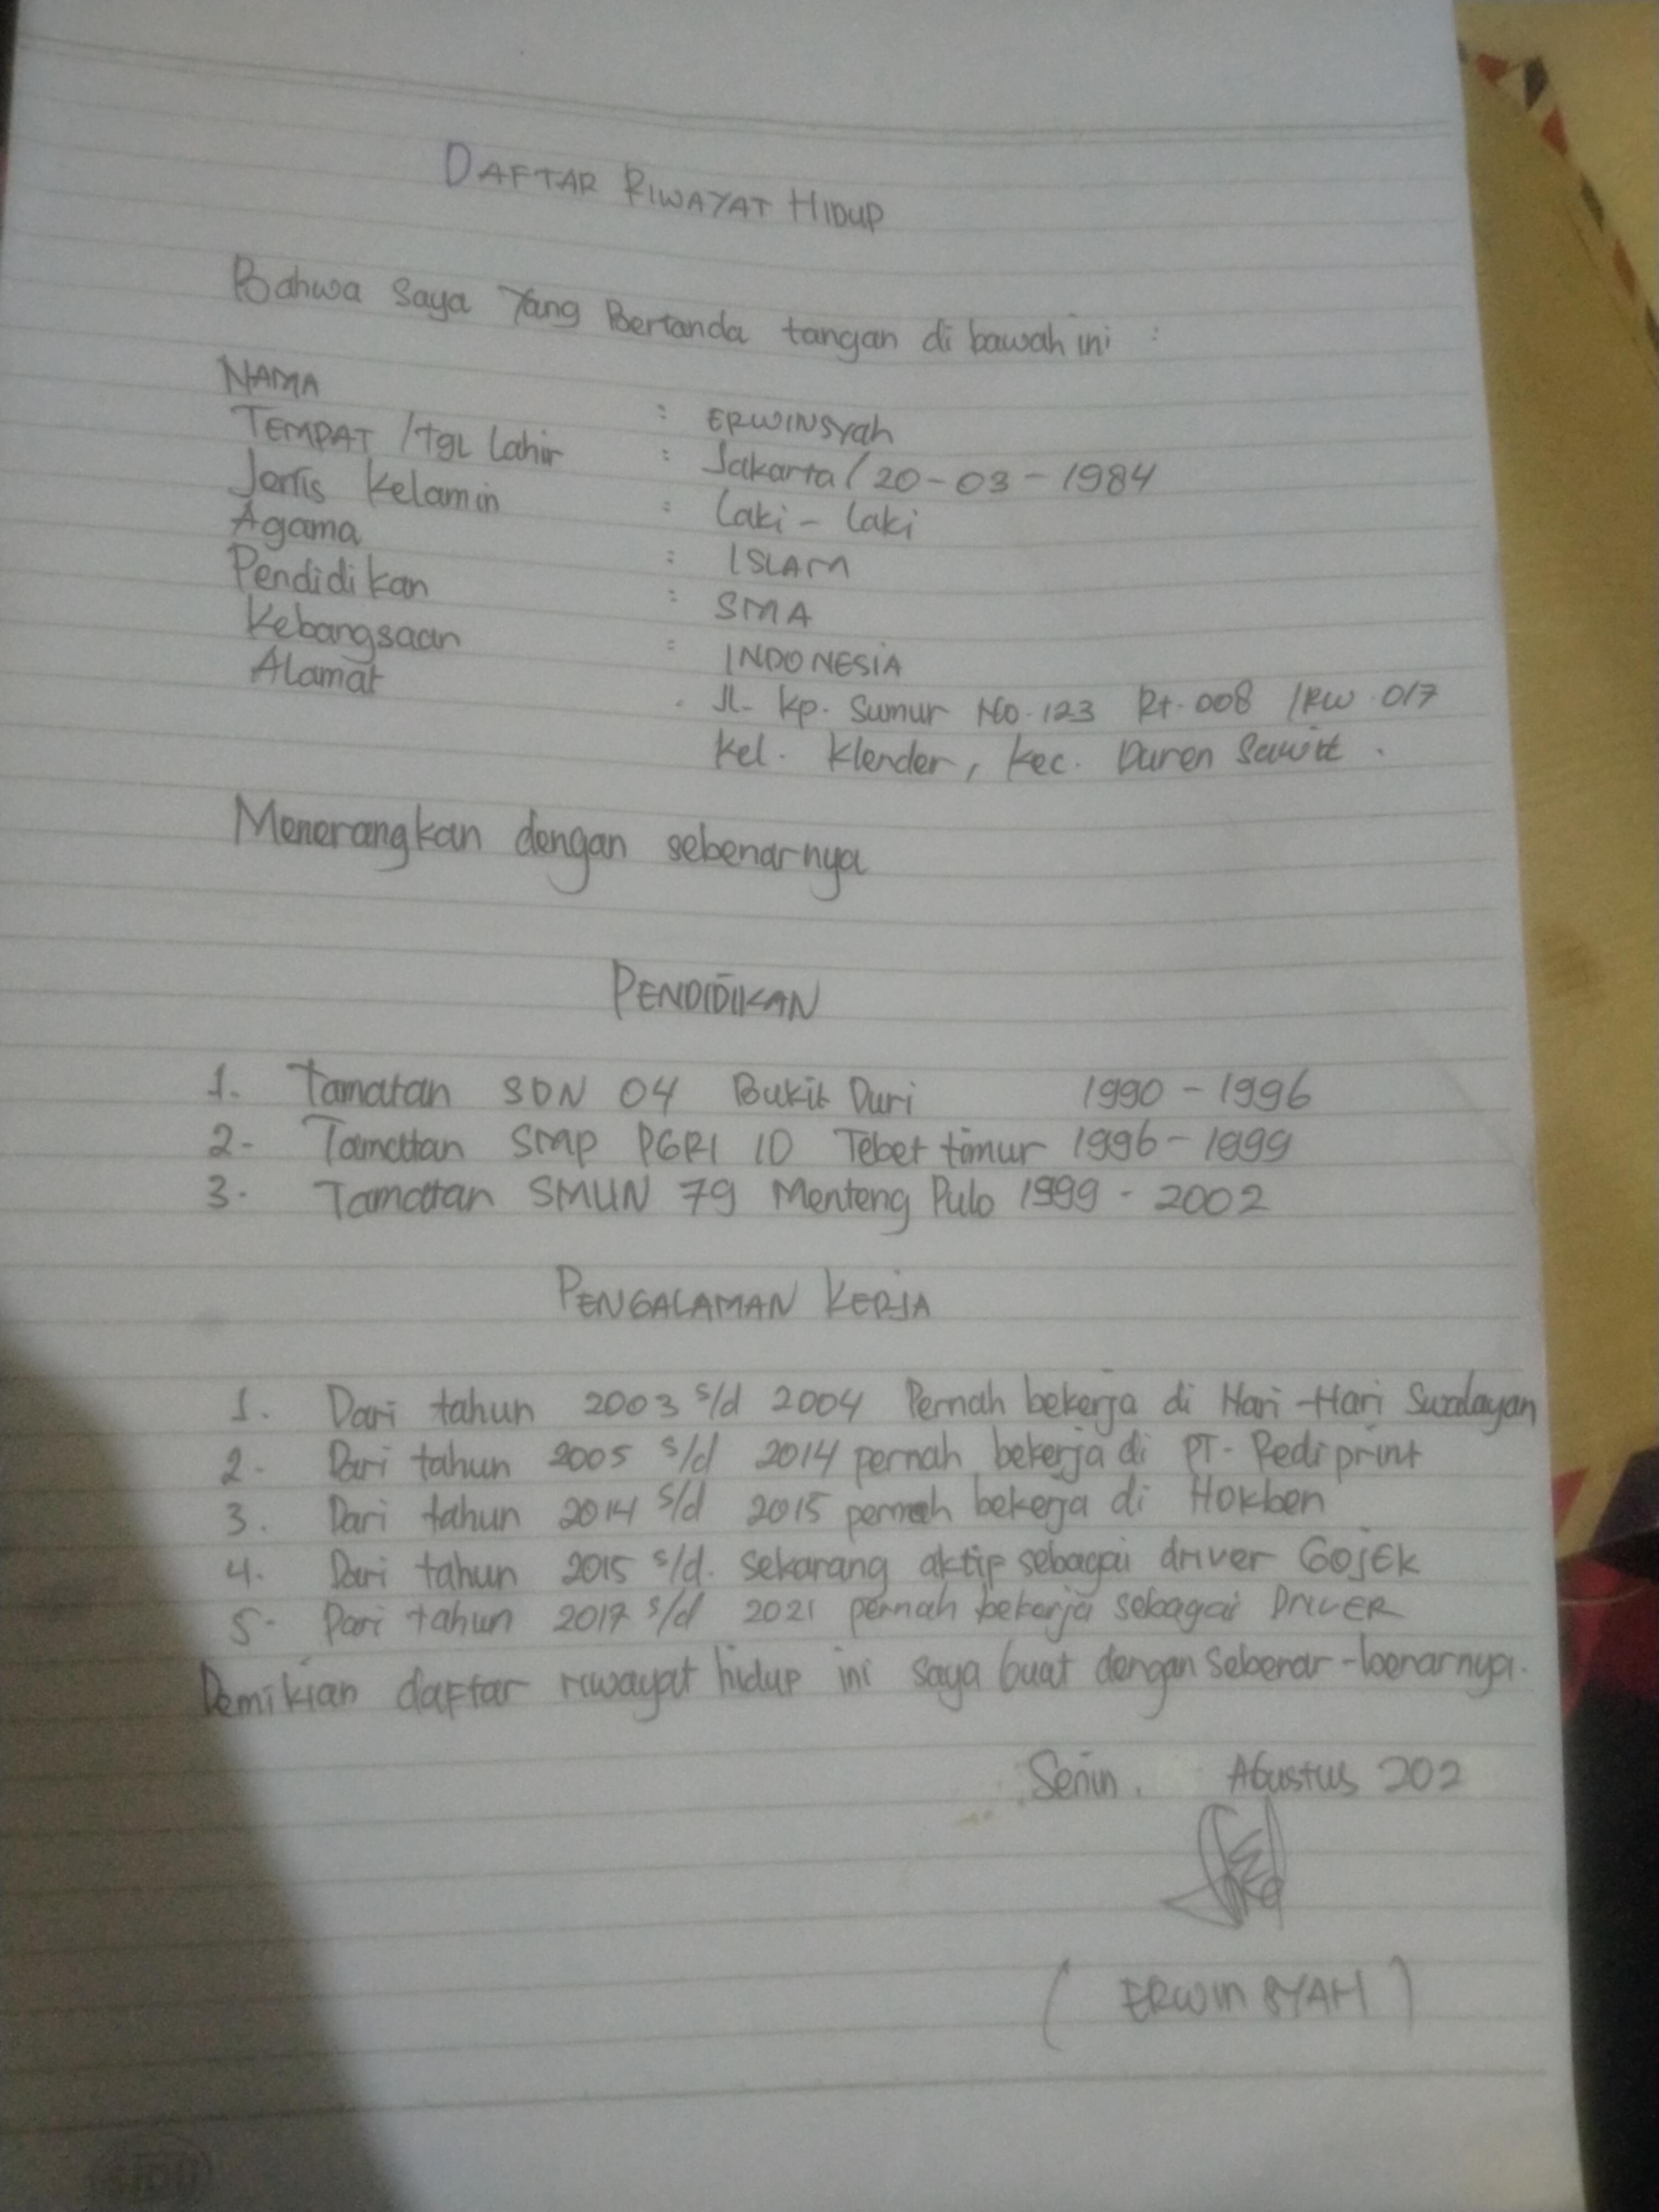 DAFTAR RIWAYAT HIDUP
Bahwa Saya Yang Bertanda tangan di bawah ini :
NAMA : ERWINSYah
TEMPAT / Tgl Lahir : Jakarta / 20-03-1984
Jenis Kelamin : Laki - Laki
Agama : ISLAM
Pendidikan : SMA
Kebangsaan : INDONESIA
Alamat : Jl. Kp. Sumur No. 123 Rt. 008 / RW. 017
Kel. Klender, Kec. Duren Sawit.
Menerangkan dengan sebenarnya
PENDIDIKAN
1. Tamatan SDN 04 Bukit Duri 1990 - 1996
2. Tamatan SMP PGRI 10 Tebet timur 1996 - 1999
3. Tamatan SMUN 79 Menteng Pulo 1999 - 2002
PENGALAMAN KERJA
1. Dari tahun 2003 s/d 2004 Pernah bekerja di Hari-Hari Swalayan
2. Dari tahun 2005 s/d 2014 pernah bekerja di PT. Rediprint
3. Dari tahun 2014 s/d 2015 pernah bekerja di Hokben
4. Dari tahun 2015 s/d. sekarang aktip sebagai driver GOjEk
5. Dari tahun 2017 s/d 2021 pernah bekerja sebagai DRIVER
Demikian daftar riwayat hidup ini saya buat dengan sebenar-benarnya.
Senin, Agustus 202
( ERWIN SYAH )
SIDU